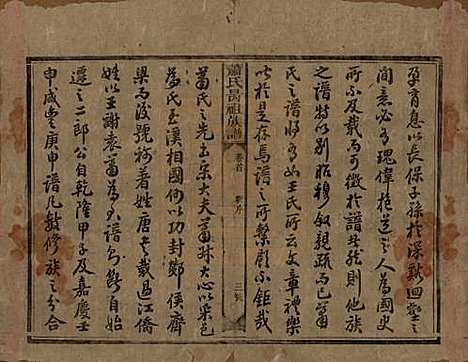 孕育息以長保子孫於深黟迴壑之
間意必有瑰偉植達之人為國史
所不及載而可徵於譜其然則天
之譜特以別昭穆叙親疏而已蕭
氏之譜將有如王氏所云文章禮樂
皆於是存焉譜之所繫顧不鉅哉
蕭氏 祖族譜 卷首 舊序 三
蕭氏之先出宋大夫蕭大心以采邑
為氏至漢相國何以功封酇侯齊
梁而後號稱著姓唐書載過江僑
姓以王謝袁蕭為大譜 斷自始
遷之二郎公自乾隆甲子及嘉慶壬
申咸豐庚申譜凡數修族之分合